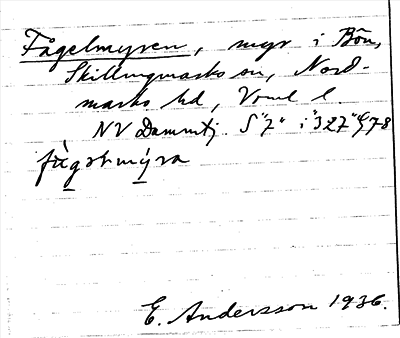 Fågelmyren, myr i Bön,
Skillingmarks sn, Nord-
marks hd, Vrml l.
NV Dammtj. S "7" i "327"
fàgelmýra
E. Andersson 1936.